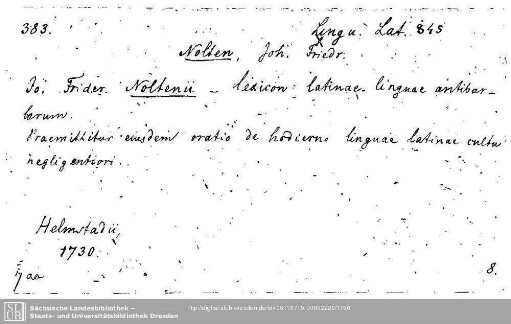 383.
Lingu. Lat. 845
Nolten, Joh. Friedr.
Jo. Frider. Noltenii – lexicon latinae linguae antibar-
barum.
Praemittitur eiusdem oratio de hodierno linguae latinae cultu
negligentiori.
Helmstadii,
1730.
8.
Sächsische Landesbibliothek –
Staats- und Universitätsbibliothek Dresden